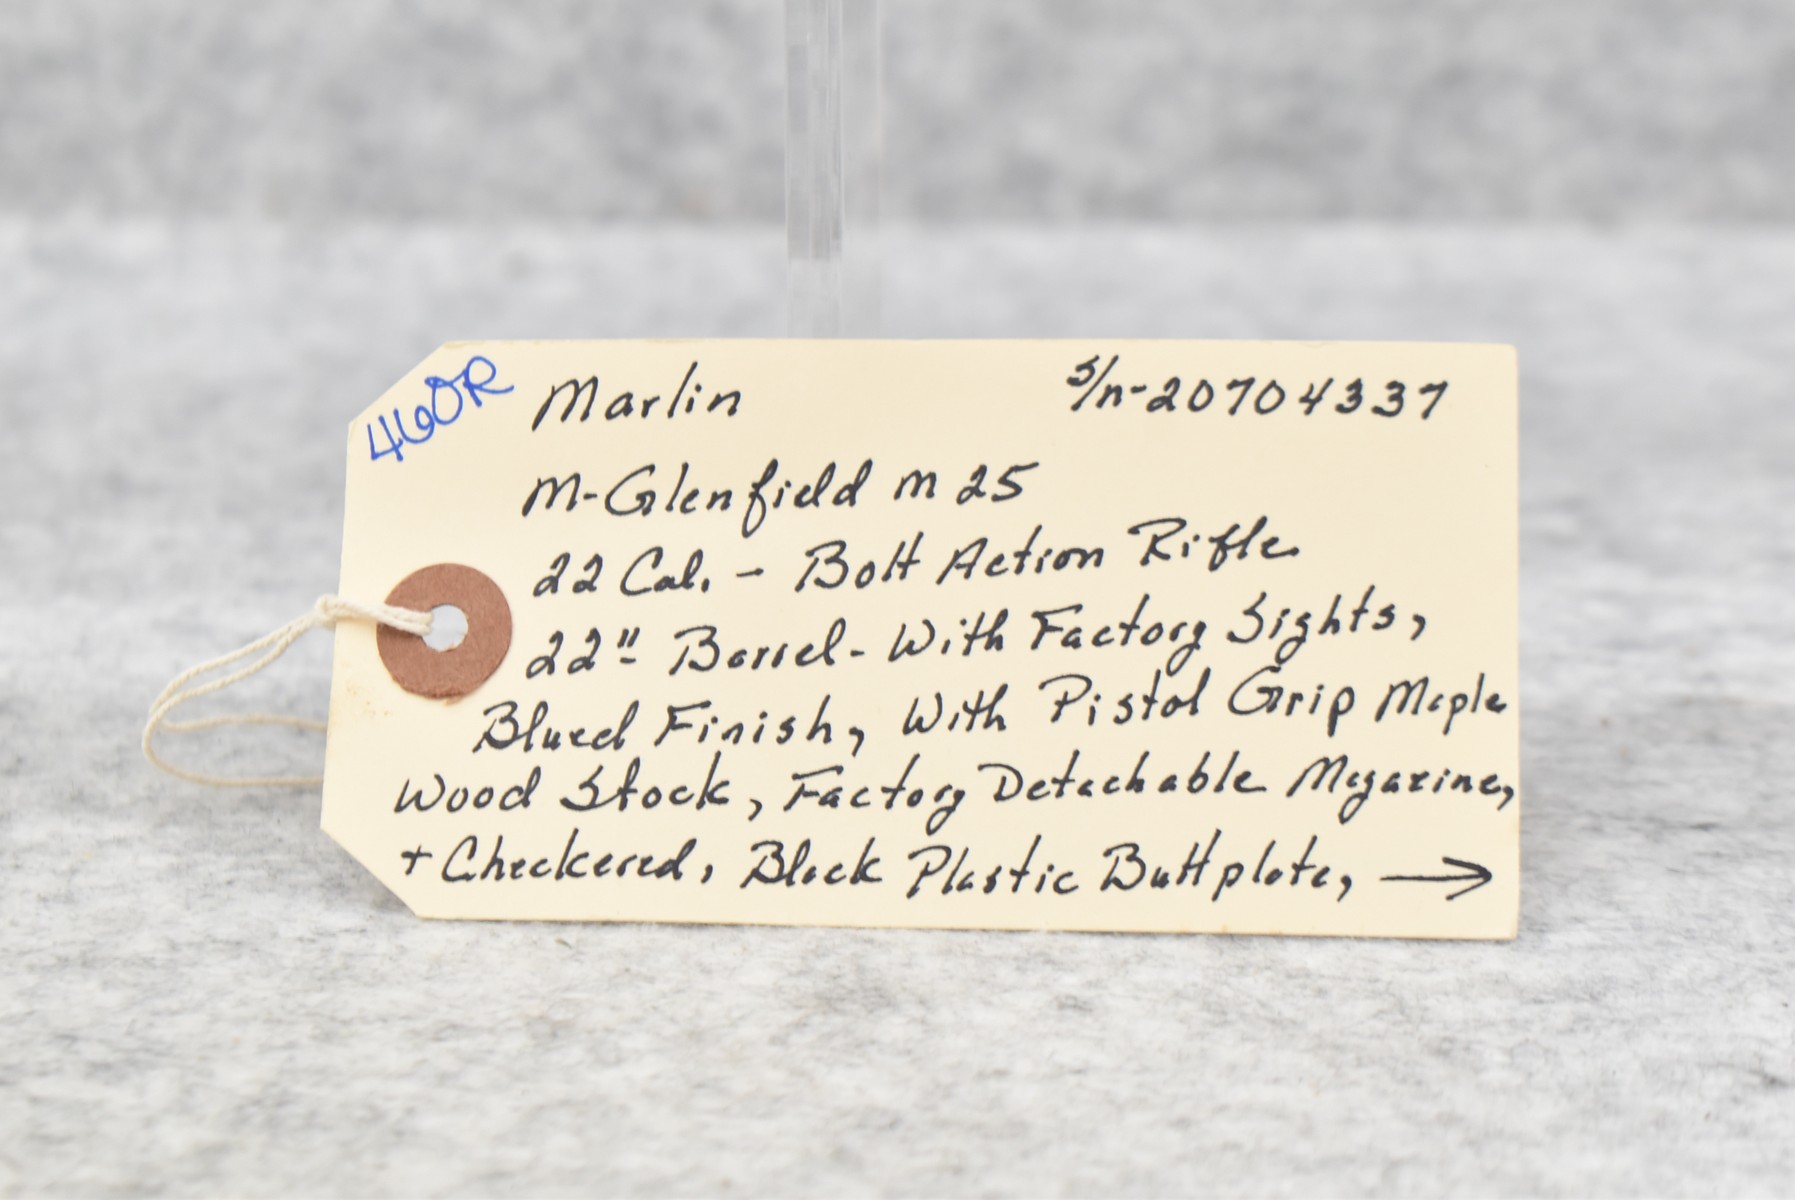 460R
Marlin s/n-20704337
M-Glenfield m 25
22 Cal. - Bolt Action Rifle
22"- Barrel- With Factory Sights,
Blued Finish, With Pistol Grip Maple
Wood Stock, Factory Detachable Magazine,
+ Checkered, Black Plastic Buttplate, →